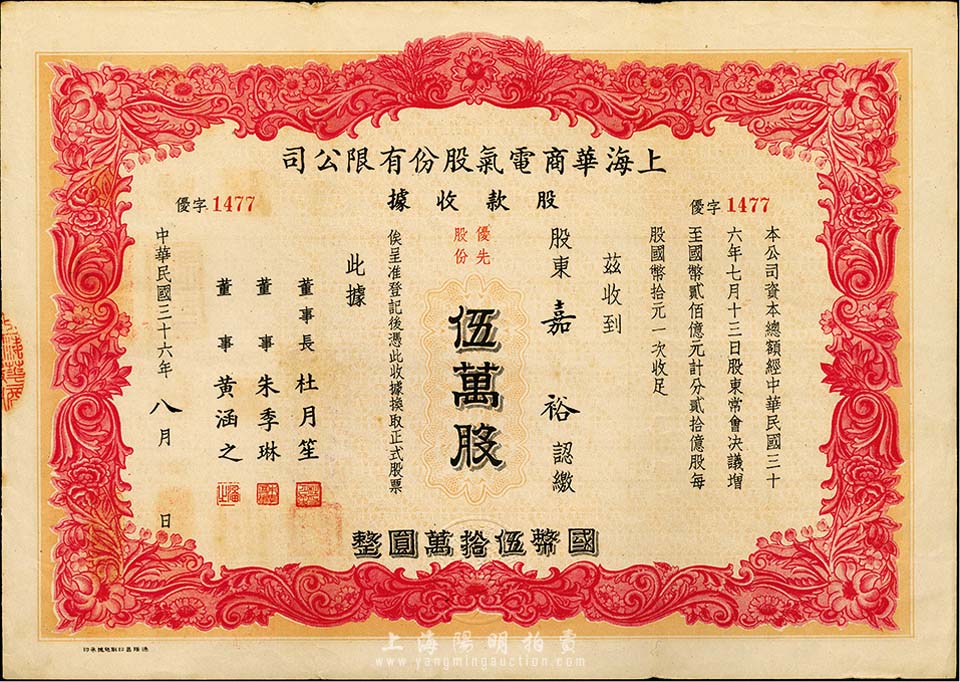 上海華商電氣股份有限公司
股款收據
優字 1477
優字 1477
本公司資本總額經中華民國三十
六年七月十三日股東常會決議增
至國幣貳佰億元計分貳拾億股每
股國幣拾元一次收足
茲收到
股東 嘉裕 認繳
優先股份
伍萬股
國幣伍拾萬圓整
俟呈准登記後憑此收據換取正式股票
此據
董事長 杜月笙
董事 朱季琳
董事 黃涵之
中華民國三十六年八月 日
上海陽明拍賣
www.yangmingauction.com